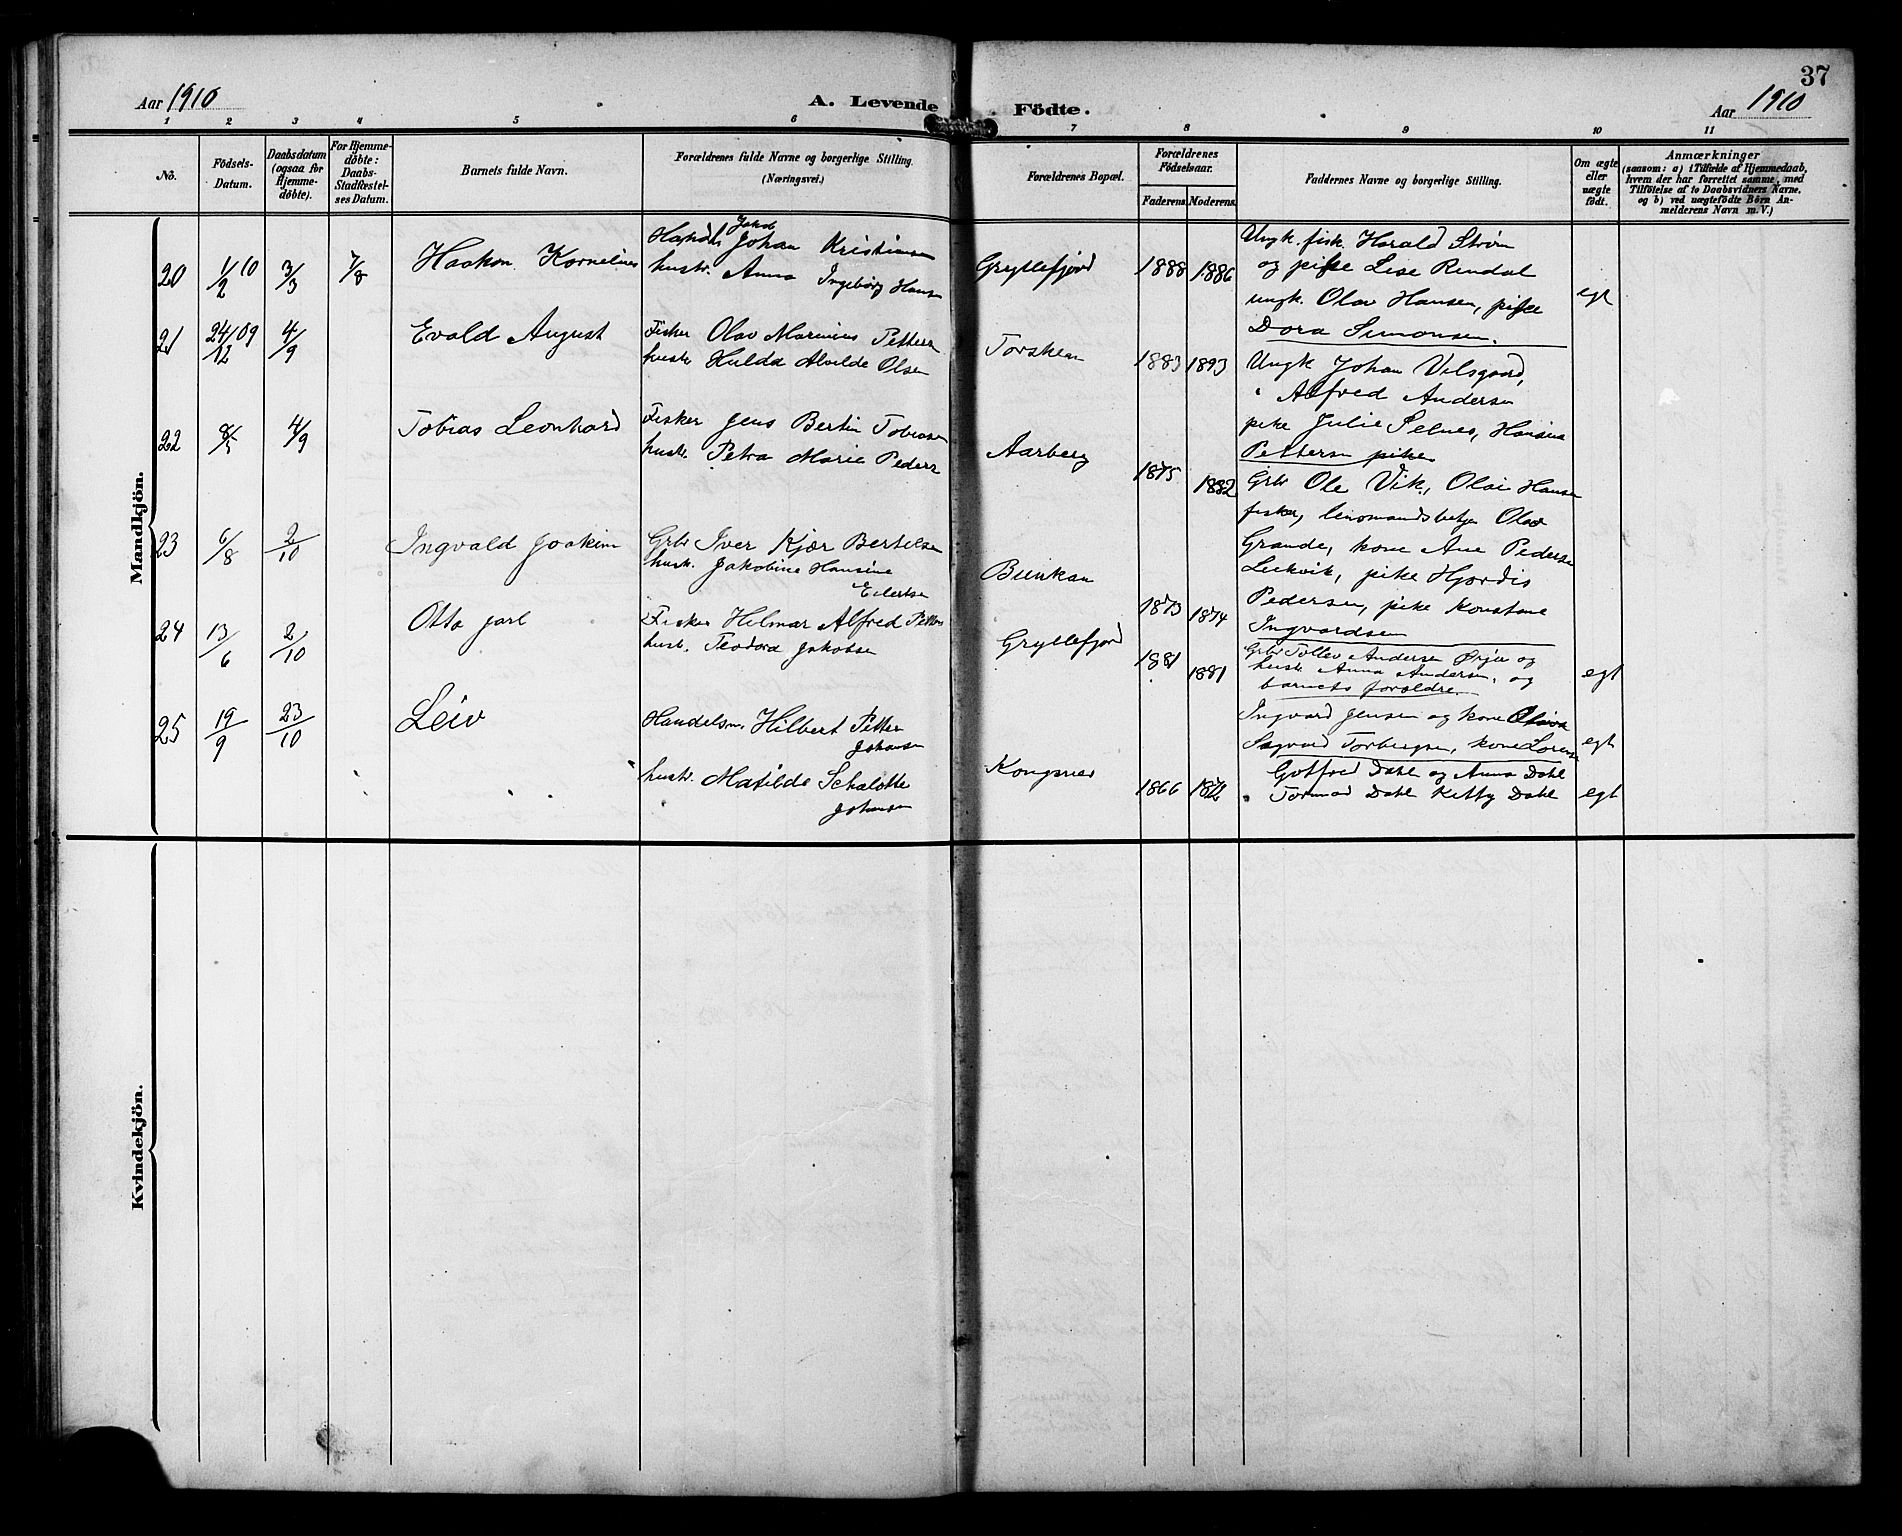 37
Aar 1910
A. Levende Födte.
Aar 1910
1 2 3 4 5 6 7 8 9 10 11
No.
Födsels-
Datum.
Daabsdatum
(ogsaa for
Hjemme-
døbte).
For Hjemme-
døbte:
Daabs-
Stadfæstel-
ses Datum.
Barnets fulde Navn.
Forældrenes fulde Navne og borgerlige Stilling.
(Næringsvei.)
Forældrenes Bopæl.
Forældrenes
Födselsaar.
Faderens. Moderens.
Faddernes Navne og borgerlige Stilling.
Om ægte
eller
uægte
födt.
Anmærkninger
(saasom: a) i Tilfælde af Hjemmedaab,
hvem der har forrettet samme, med
Tilföielse af to Daabsvidners Navne,
og b) ved uægtefödte Börn An-
melderens Navn m. V.)
Mandkjön.
20 1/2 10 3/3 7/8 Haakon Kornelius
Jakob
Johan Kristiansen
hustr. Anna Ingeborg Hansen
Gryllefjord 1888 1886
Ungk. fisk. Harald Strøm
og pike Lise Rendal
ungk. Olav Hansen, pike
Dora Simonsen.
egt
21 24/12 09 4/9 Evald August
Fisker Olav Marinius Petters
hustr Hulda Alvilde Olsen
Torsken 1883 1893
Ungk Johan Vilsgaard,
" Alfred Andersen
pike Julie Selnes, Hansine
Pettersen pike
22 8/5 4/9 Tobias Leonhard
Fisker Jens Bertin Tobiasen
hustr. Petra Marie Peders
Aarberg 1875 1882
Grbr Ole Vik, Olai Hansen
fisker, lensmandsbetj. Olav
Grande, kone Ane Pedersen
Leikvik, pike Hjørdis
Pedersen, pike Konstanse
Ingvardsen
23 6/8 2/10 Ingvald Joakim
Grbr Iver Kjær Bertelsen
hustr. Jakobine Hansine
Eilertsen
Bunkan 1873 1874
24 13/6 2/10 Otto Jarl
Fisker Hilmar Alfred Petters
hustr. Teodora Jakobsen
Gryllefjord 1881 1881
Grbr Tollev Andersen Ørjer og
hustr Anna Andersen, og
barnets forældre
egt
25 19/9 23/10 Leiv
Handelsm. Hilbert Petter
Johansen
hustr. Matilde Schalotte
Johansen
Kongsnes 1866 1872
Ingvard Jensen og kone Olava
Sigvard Torbergsen, kone Lorense
egt
Gotfred Dahl og Anna Dahl
Tormod Dahl Ketty Dahl
egt
Kvindekjön.